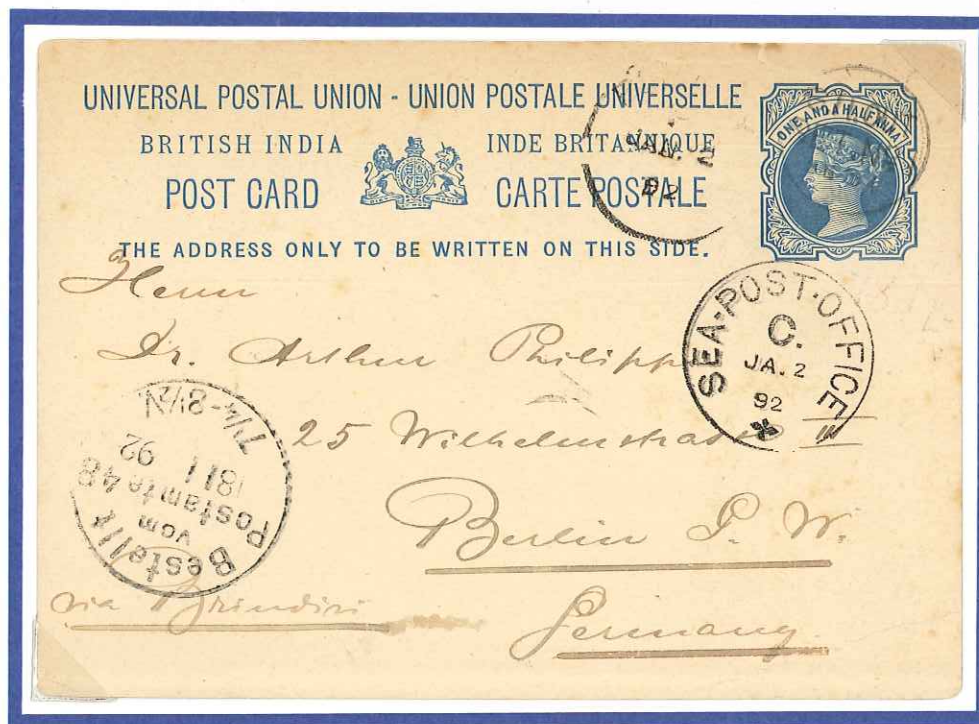 UNIVERSAL POSTAL UNION - UNION POSTALE UNIVERSELLE
BRITISH INDIA INDE BRITANNIQUE
POST CARD CARTE POSTALE
THE ADDRESS ONLY TO BE WRITTEN ON THIS SIDE.
ONE AND A HALF ANNA
JAN. 2
92
Herrn
Dr. Arthur Philipp
25 Wilhelmstrasse II
Berlin S. W.
Germany
via Brindisi
SEA-POST-OFFICE
C.
JA. 2
92
Bestellt
vom
Postamte 48
18 1 92
7¼-8½N